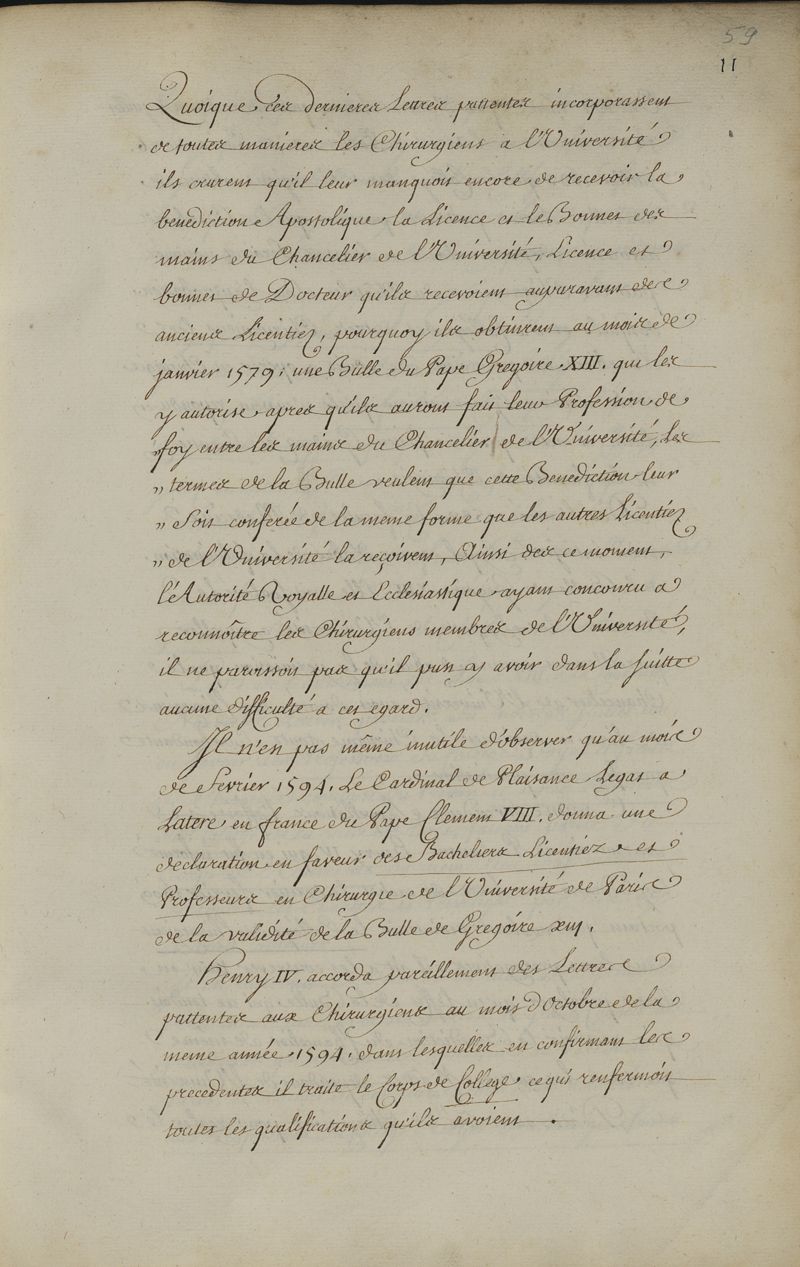 59
11
Quoique ces dernieres Lettres pattentes incorporassent
de toutes manieres les Chirurgiens a l'Université
ils crurent qu'il leur manquoit encore de recevoir la
benediction Apostolique la Licence et le Bonnet des
mains du Chancelier de l'Université, Licence et
bonnet de Docteur qu'ils recevoient auparavant des
anciens Licentiez, pourquoy ils obtinrent au mois de
janvier 1579. une Bulle du Pape Gregoire XIII. qui les
y autorise apres qu'ils auront fait leur Profession de
„foy entre les mains du Chancelier de l'Université, Les
„ termes de la Bulle veulent que cette Benediction leur
„ Soit conferée de la meme forme que les autres Licentiez
„ de l'Université la reçoivent, Ainsi des ce moment,
l'Autorité Royalle et Ecclesiastique ayant concouru a
reconnoître les Chirurgiens membres de l'Université,
il ne paroissoit pas qu'il put y avoir dans la suitte
aucune difficulté a cet egard.
Il n'est pas même inutile d'observer qu'au mois
de Fevrier 1594. Le Cardinal de Plaisance Legat a
Latere en france du Pape Clement VIII. donna une
declaration en faveur des Bacheliers Licentiez et
Professeurs en Chirurgie de l'Université de Paris
de la validité de la Bulle de Gregoire xiij.
Henry IV. accorda pareillement des Lettres
pattentes aux Chirurgiens au mois d'Octobre de la
meme année 1594. dans lesquelles en confirmant les
precedentes il traite le Corps de College ce qui renfermoit
toutes les qualifications qu'ils avoient.